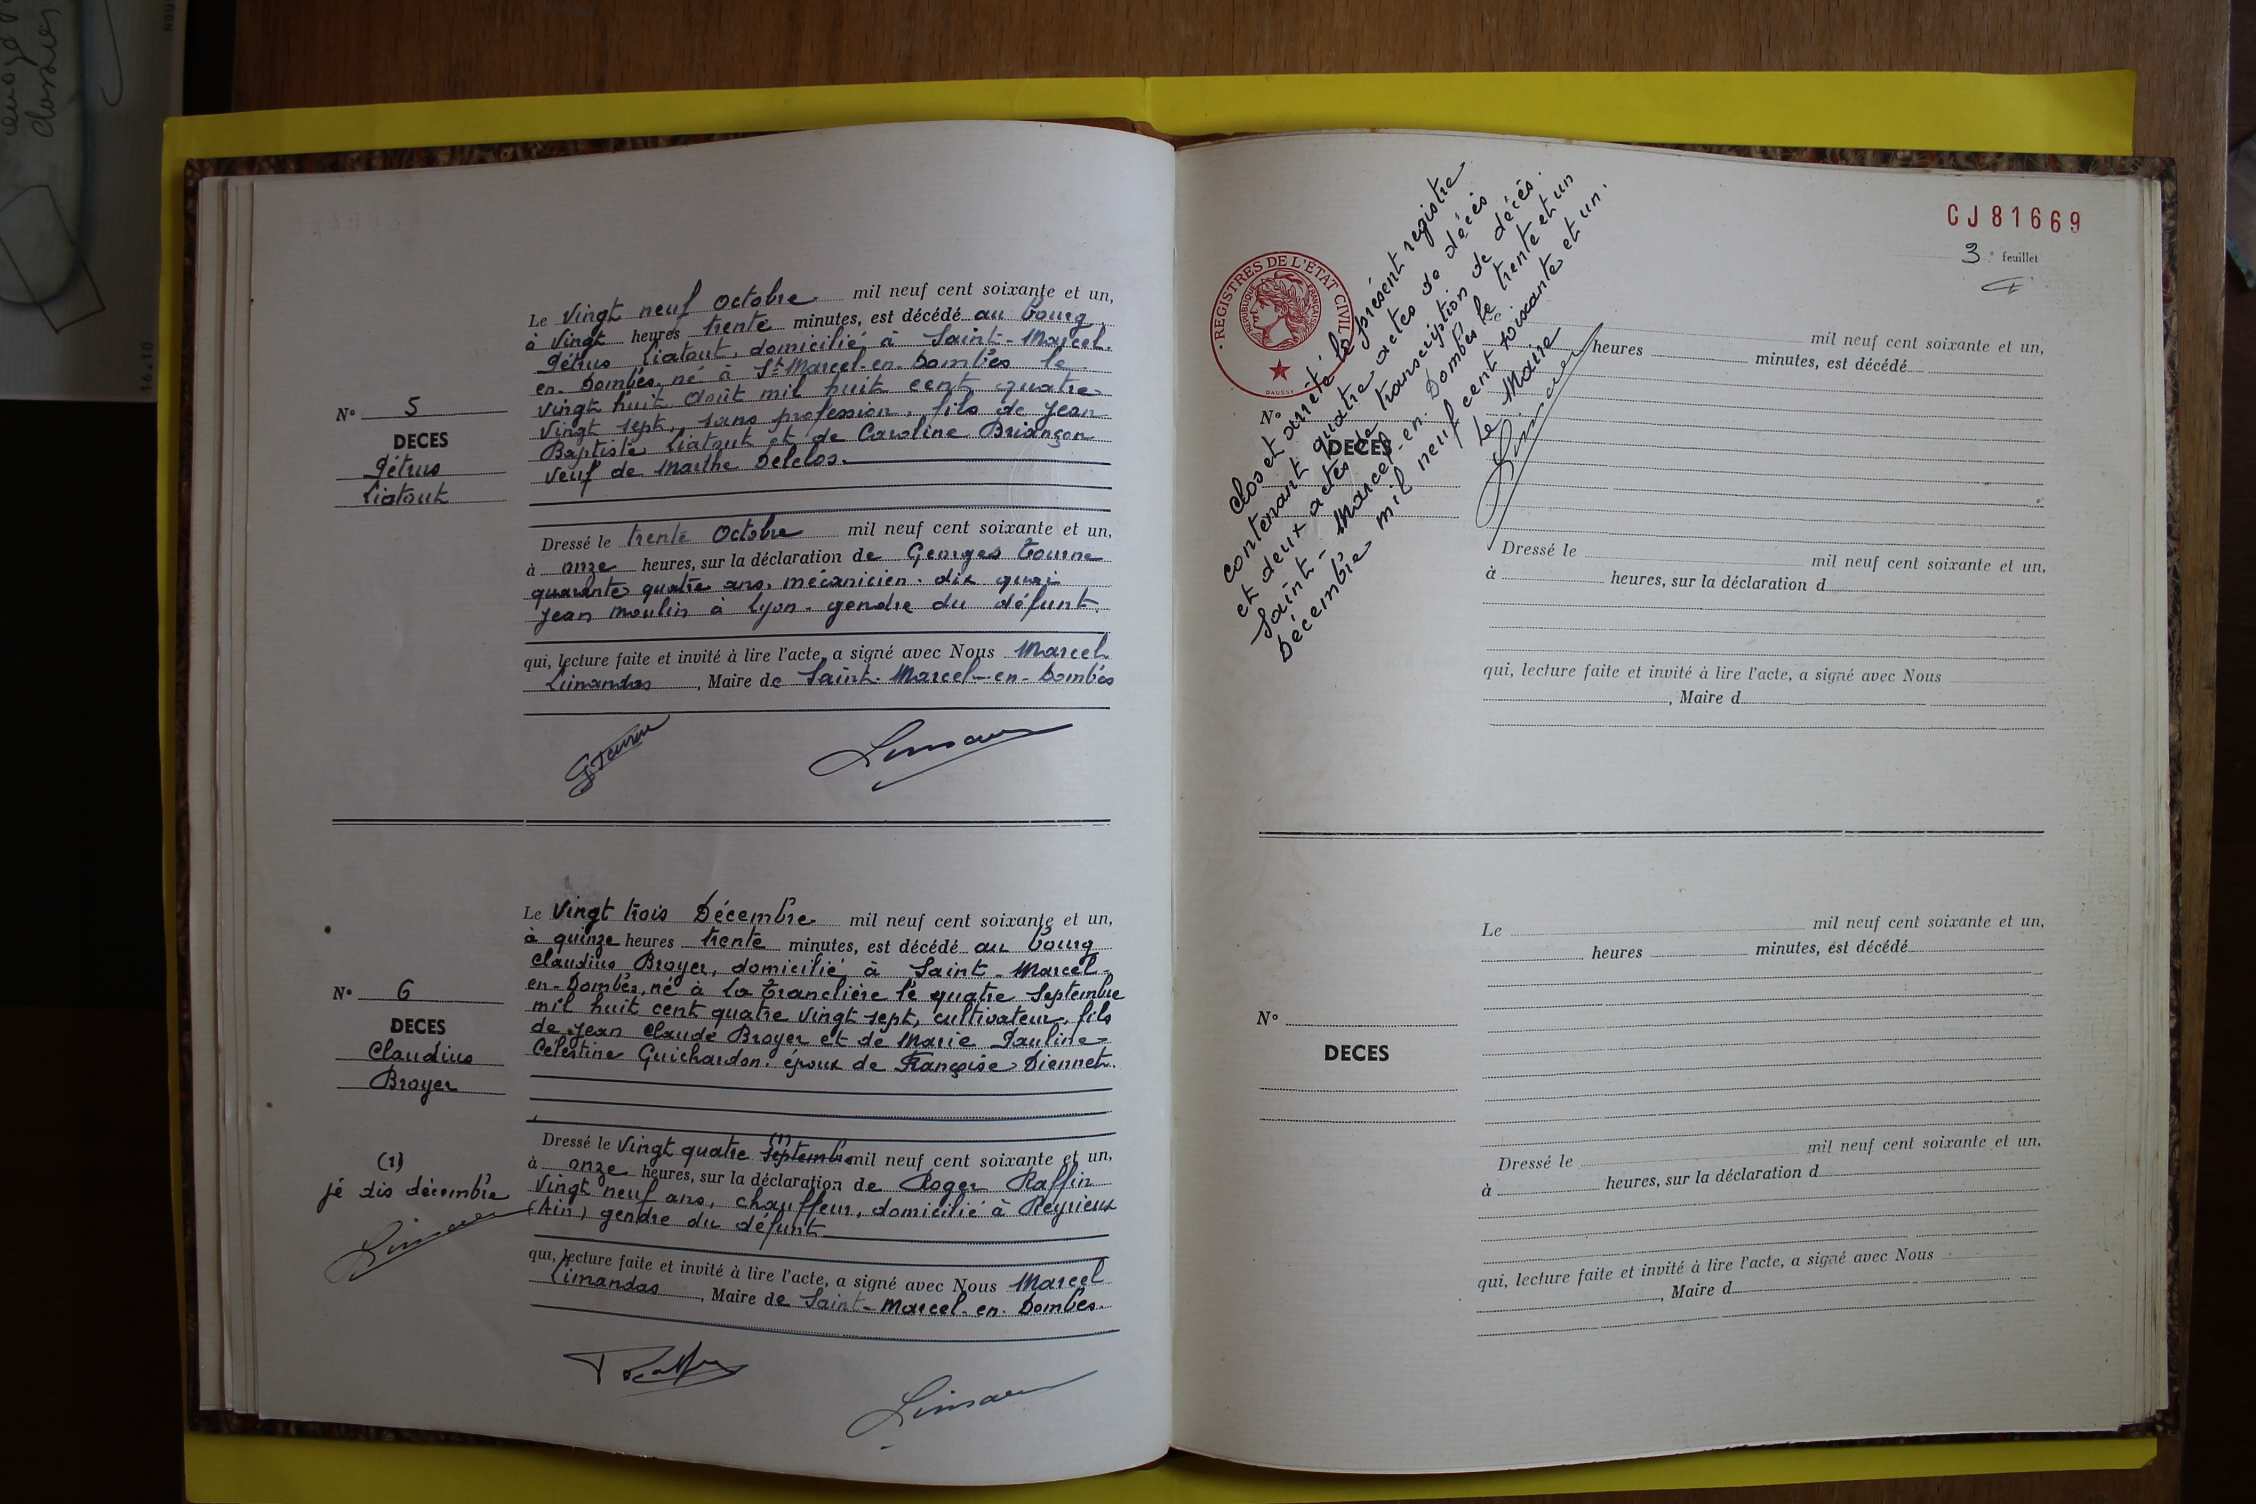 Le vingt neuf Octobre mil neuf cent soixante et un,
à vingt heures trente minutes, est décédé au bourg
Pétrus Liatout, domicilié à Saint-Marcel-
en-Dombes, né à St Marcel-en-Dombes le
vingt huit août mil huit cent quatre
vingt sept, sans profession, fils de Jean
Baptiste Liatout et de Caroline Briançon
veuf de Marthe Delclos.
N° 5
DECES
Pétrus
Liatout
Dressé le trente Octobre mil neuf cent soixante et un,
à onze heures, sur la déclaration de Georges Tourne
quarante quatre ans, mécanicien, dix quai
Jean Moulin à Lyon, gendre du défunt.
qui, lecture faite et invité à lire l'acte, a signé avec Nous Marcel
Limandas, Maire de Saint-Marcel-en-Dombes
Le vingt trois Décembre mil neuf cent soixante et un,
à quinze heures trente minutes, est décédé au bourg
Claudius Broyer, domicilié à Saint-Marcel-
en-Dombes, né à La Tranclière le quatre Septembre
mil huit cent quatre vingt sept, cultivateur, fils
de Jean Claude Broyer et de Marie Pauline
Célestine Guichardon, époux de Françoise Diennet.
N° 6
DECES
Claudius
Broyer
Dressé le vingt quatre (1) Septembre mil neuf cent soixante et un,
à onze heures, sur la déclaration de Roger Raffin
vingt neuf ans, chauffeur, domicilié à Reyrieux
(Ain) gendre du défunt
(1)
je dis décembre
qui, lecture faite et invité à lire l'acte, a signé avec Nous Marcel
Limandas, Maire de Saint-Marcel-en-Dombes.
CJ81669
3e feuillet
REGISTRES DE L'ÉTAT CIVIL
RÉPUBLIQUE FRANÇAISE
Clos et arrêté le présent registre
contenant quatre actes de décès
et deux actes de transcription de décès.
Saint-Marcel-en-Dombes le trente et un
Décembre mil neuf cent soixante et un.
Le Maire
Le mil neuf cent soixante et un,
heures minutes, est décédé
N°
DECES
Dressé le mil neuf cent soixante et un,
à heures, sur la déclaration d
qui, lecture faite et invité à lire l'acte, a signé avec Nous
, Maire d
Le mil neuf cent soixante et un,
heures minutes, est décédé
N°
DECES
Dressé le mil neuf cent soixante et un,
à heures, sur la déclaration d
qui, lecture faite et invité à lire l'acte, a signé avec Nous
, Maire d